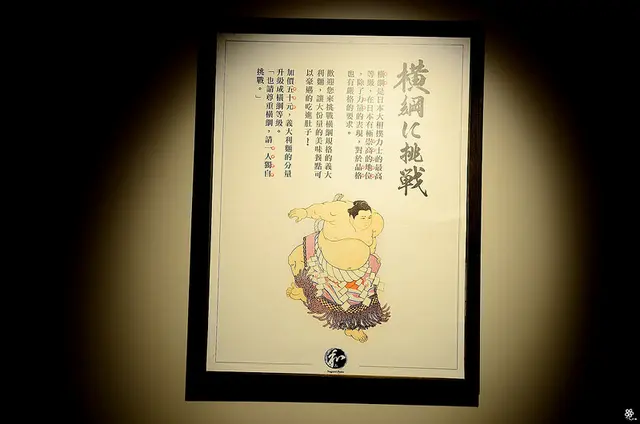 橫綱に挑戰
橫綱是日本大相撲力士的最高
等級，在日本有極崇高的地位
，除了力量的表現，對於品格
也有嚴格的要求。
歡迎您來挑戰橫綱規格的義大
利麵，讓大份量的美味餐點可
以豪邁的吃進肚子！
加價五十元，義大利麵的分量
升級成橫綱等級。
「也請尊重橫綱，請一人獨自
挑戰。」
和